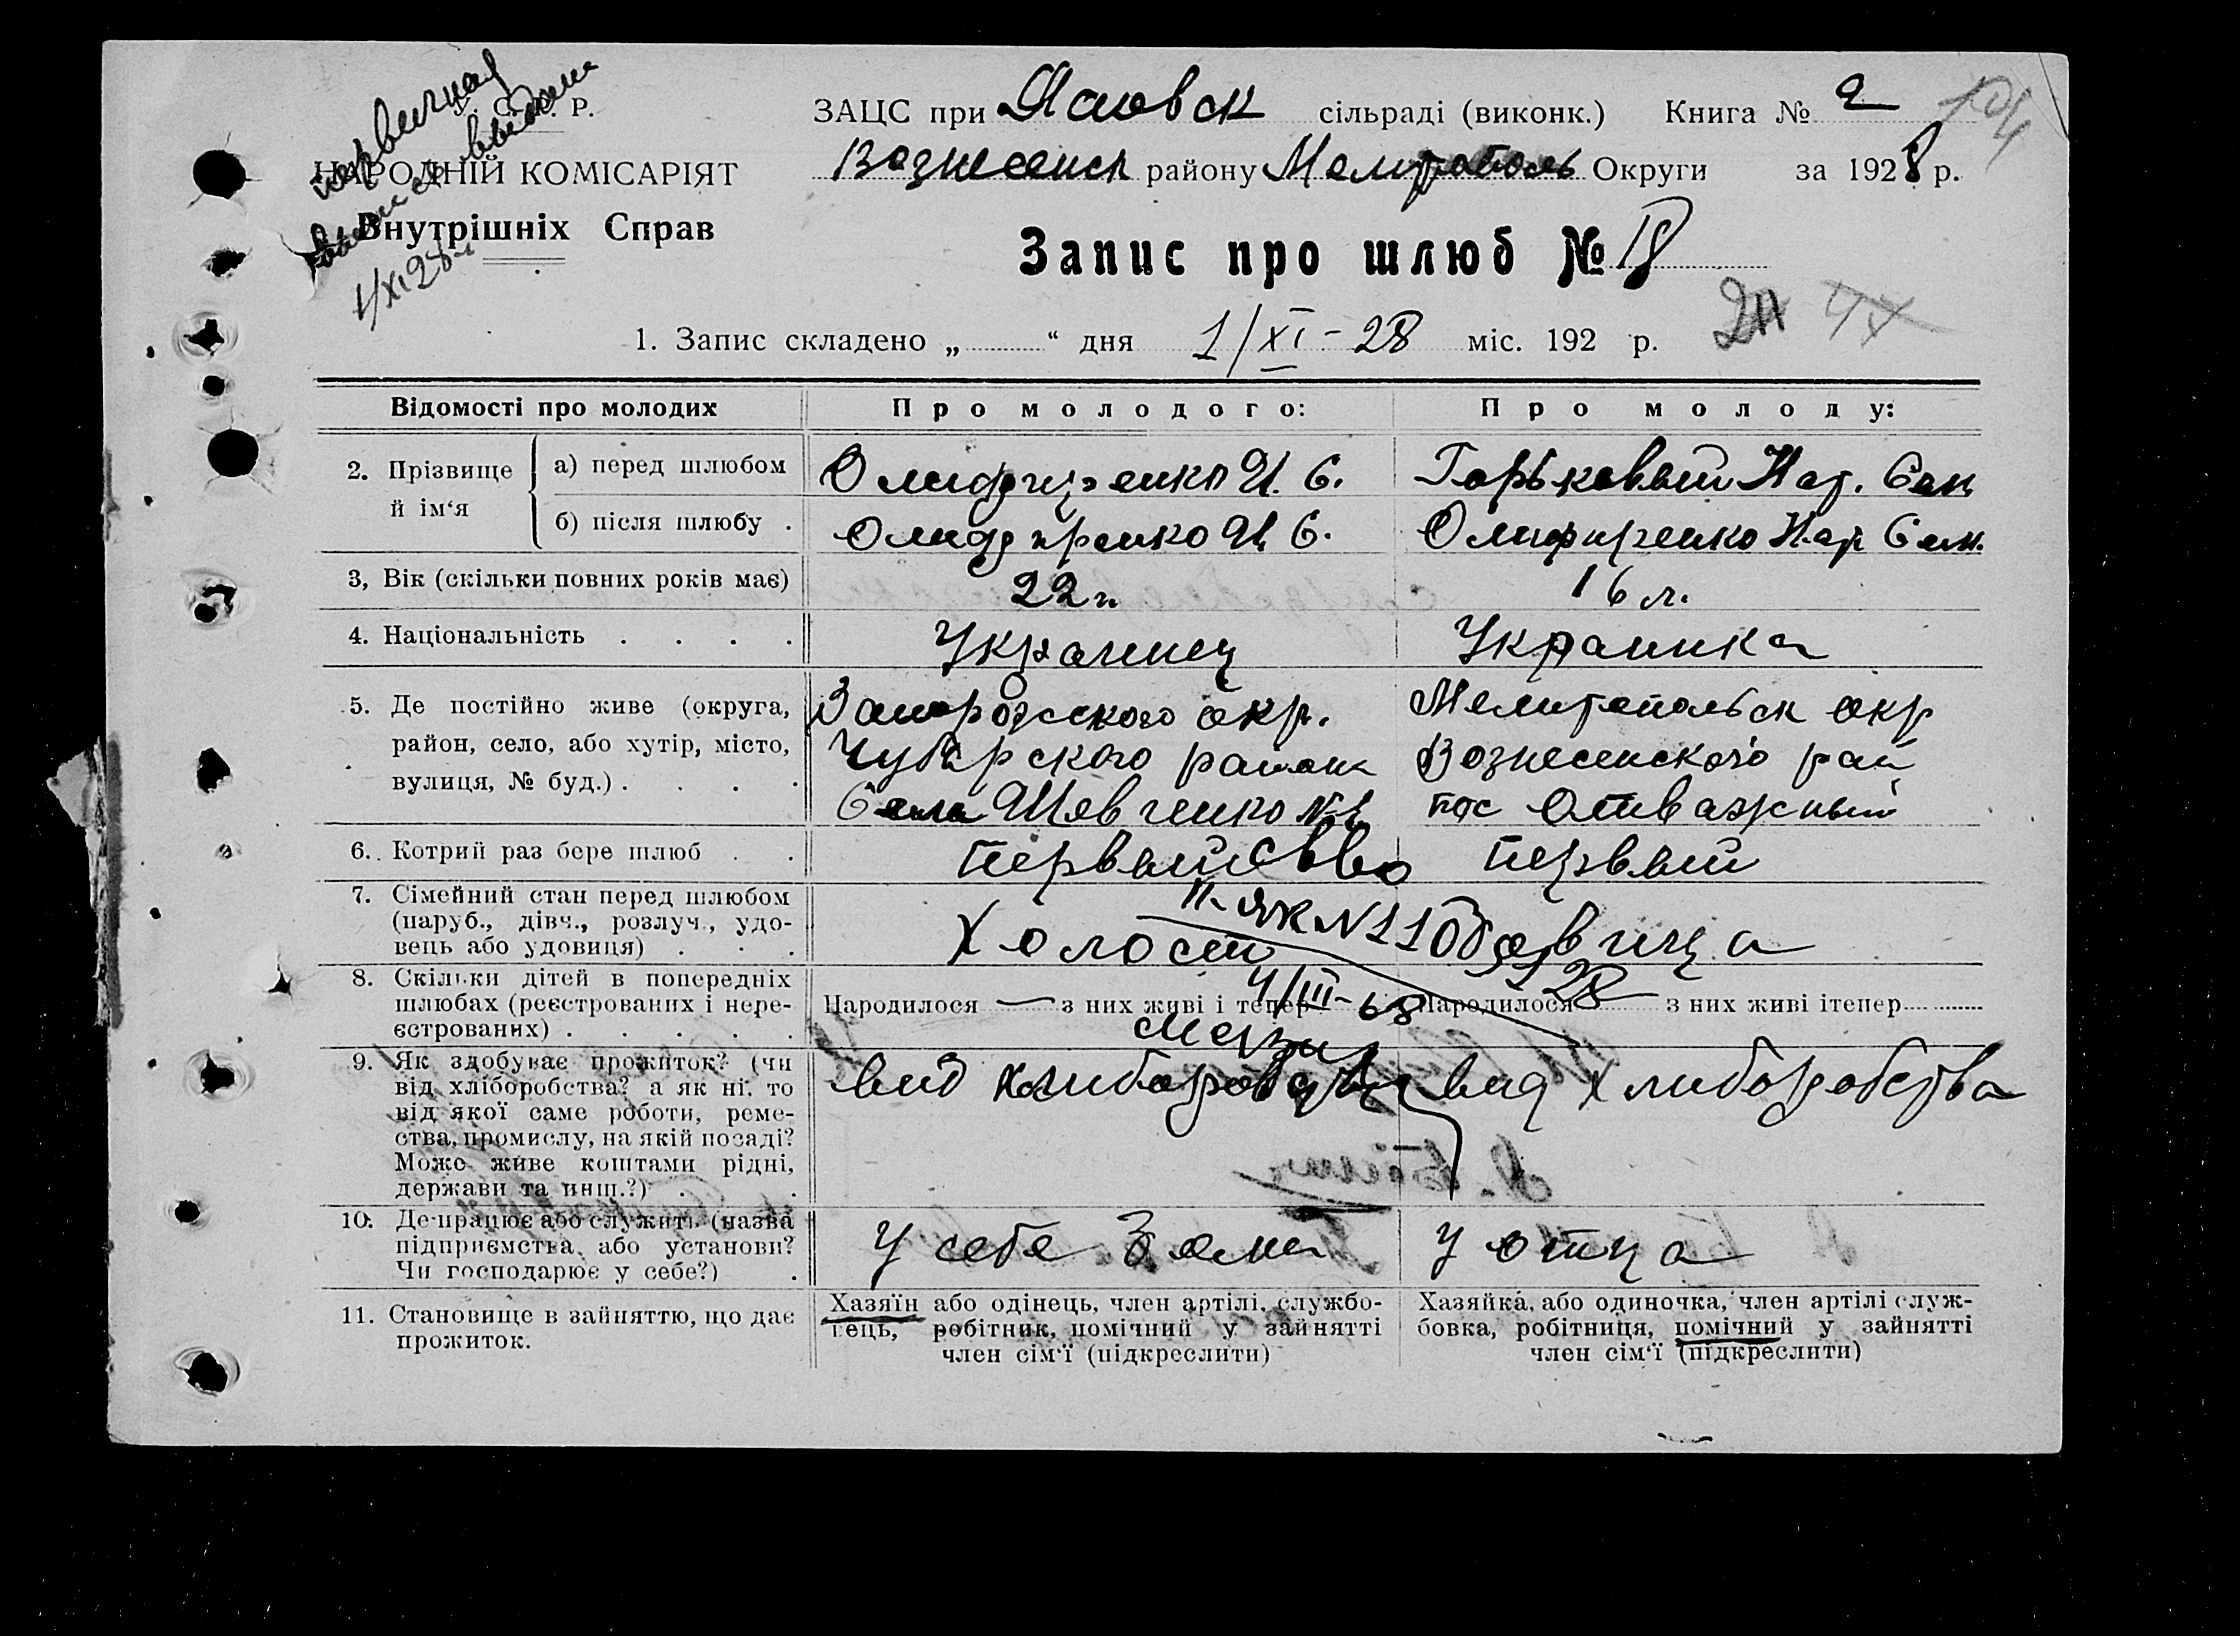 первичная
выдана
1/XI 28 г
У. С. Р. Р.
НАРОДНІЙ КОМІСАРІЯТ
Внутрішніх Справ
ЗАЦС при сільраді (виконк.) Книга № 2
Вознесенск району Мелитополь Округи за 1928 р.
Запис про шлюб № 18
1. Запис складено „ “ дня 1/XI-28 міс. 192 р.
Відомості про молодих
Про молодого:
Про молоду:
2. Прізвище й ім‘я
а) перед шлюбом
Олифиренко И. С.
Горьковый Нат. Сем
б) після шлюбу .
Олифиренко И. С.
Олифиренко Сем.
3, Вік (скільки повних років має)
22 г.
16 л.
4. Національність . . . .
Украинец
Украинка
5. Де постійно живе (округа,
район, село, або хутір, місто,
вулиця, № буд.) . . . .
Запорожского окр.
Чубарского района
Села Шевченко №1
Мелитопольск окр
Вознесенского рай
пос Отважный
6. Котрий раз бере шлюб . .
первый
первый
7. Сімейний стан перед шлюбом
(паруб., дівч., розлуч., удо-
вець або удовиця) . . .
Холост
девица
8. Скільки дітей в попередніх
шлюбах (реєстрованих і нере-
єстрованих) . . . . .
Народилося — з них живі і тепер
Народилося — з них живі ітепер
с-во
II-ЯК №110
4/III-68
9. Як здобуває прожиток? (чи
від хліборобства? а як ні. то
від якої саме роботи, реме-
ства, промислу, на якій посаді?
Може живе коштами рідні,
держави та инш.?) . .
вид хлиборобства
вид хлиборобства
10. Де працює або служить (назва
підприємства, або установи?
Чи господарює у себе?) .
У себе дома
У отца
11. Становище в зайняттю, що дає
прожиток.
Хазяїн або одінець, член артілі, службо-
вець, робітник, помічний у зайнятті
член сім‘ї (підкреслити)
Хазяйка, або одиночка, член артілі служ-
бовка, робітниця, помічний у зайнятті
член сім‘ї (підкреслити)